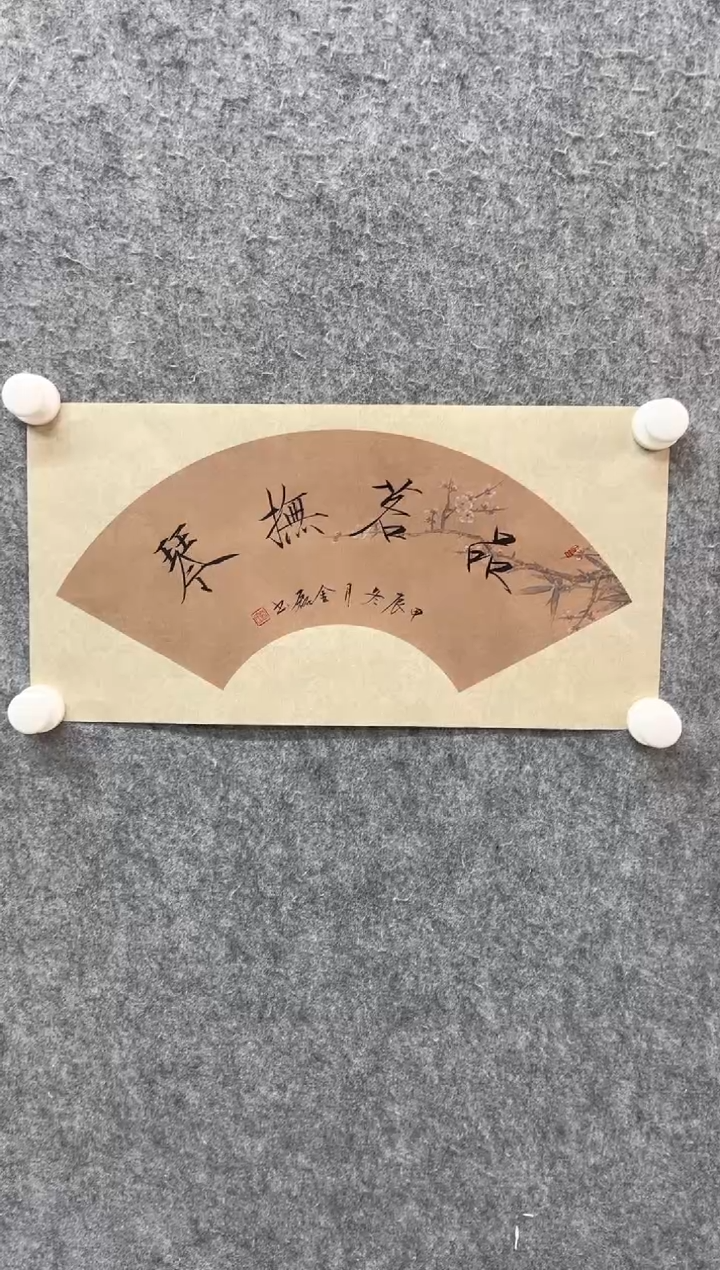 品茗撫琴
甲辰冬月金磊书